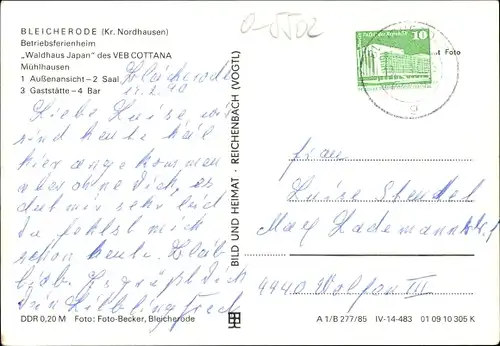 BLEICHERODE (Kr. Nordhausen)
Betriebsferienheim
„Waldhaus Japan" des VEB COTTANA
Mühlhausen
1 Außenansicht – 2 Saal
3 Gaststätte – 4 Bar
Bleicherode
Liebe Luise, wir
sind heute heil
hier angekommen
aber ohne Dich, es
tut mir sehr leid
Du fehlst mich
schon heute. Bleib
lieb. Es grüßt Dich
Dein Liebling
DDR 0,20 M Foto: Foto-Becker, Bleicherode
BILD UND HEIMAT · REICHENBACH (VOGTL)
10
Foto
Frau
Luise
Max Lademannstr
4440 Wolfen III
A 1/B 277/85 IV-14-483 01 09 10 305 K